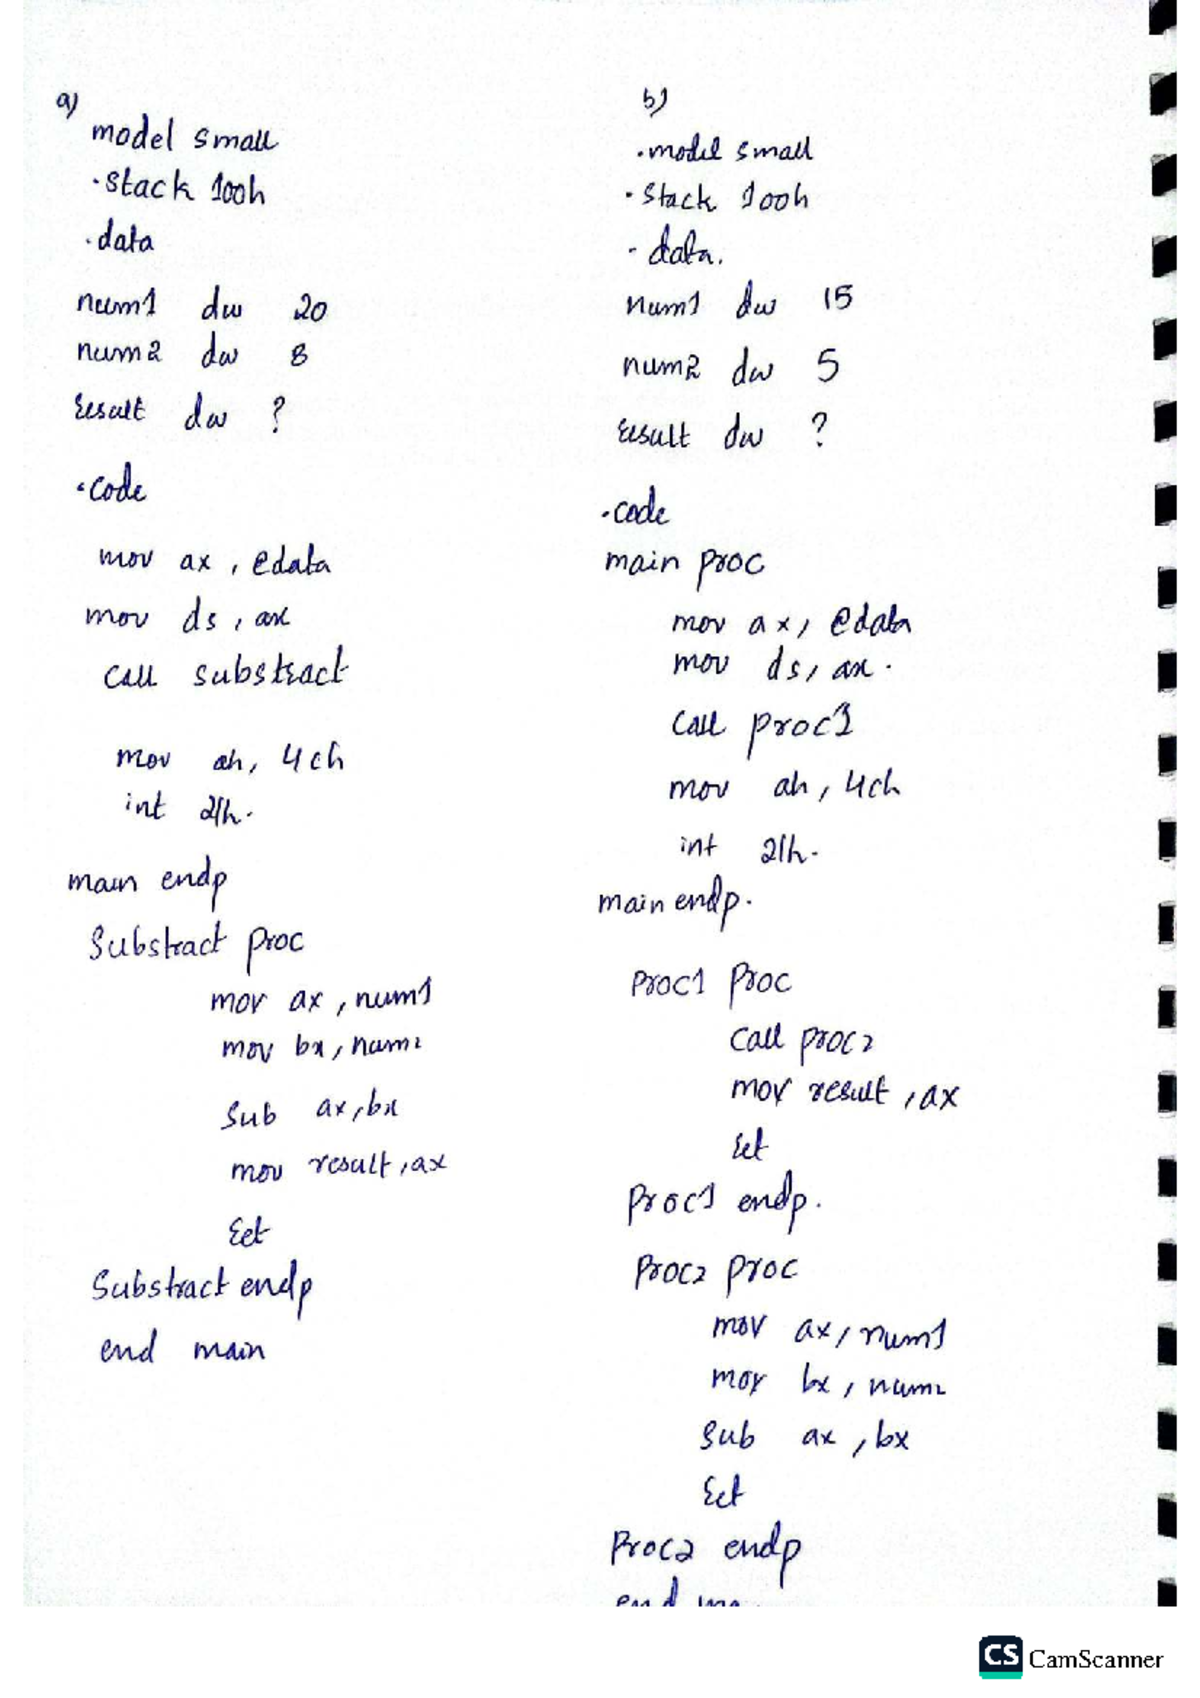 a)
model small
.stack 100h
.data
num1 dw 20
num2 dw 8
result dw ?
.code
mov ax, @data
mov ds, ax
call substract
mov ah, 4ch
int 21h.
main endp
Substract proc
mov ax, num1
mov bx, num2
sub ax, bx
mov result, ax
ret
Substract endp
end main
b)
.model small
.stack 100h
.data.
num1 dw 15
num2 dw 5
result dw ?
.code
main proc
mov ax, @data
mov ds, ax.
call proc1
mov ah, 4ch
int 21h.
main endp.
Proc1 proc
call proc2
mov result, ax
ret
Proc1 endp.
Proc2 proc
mov ax, num1
mov bx, num2
sub ax, bx
ret
Proc2 endp
end
CS CamScanner